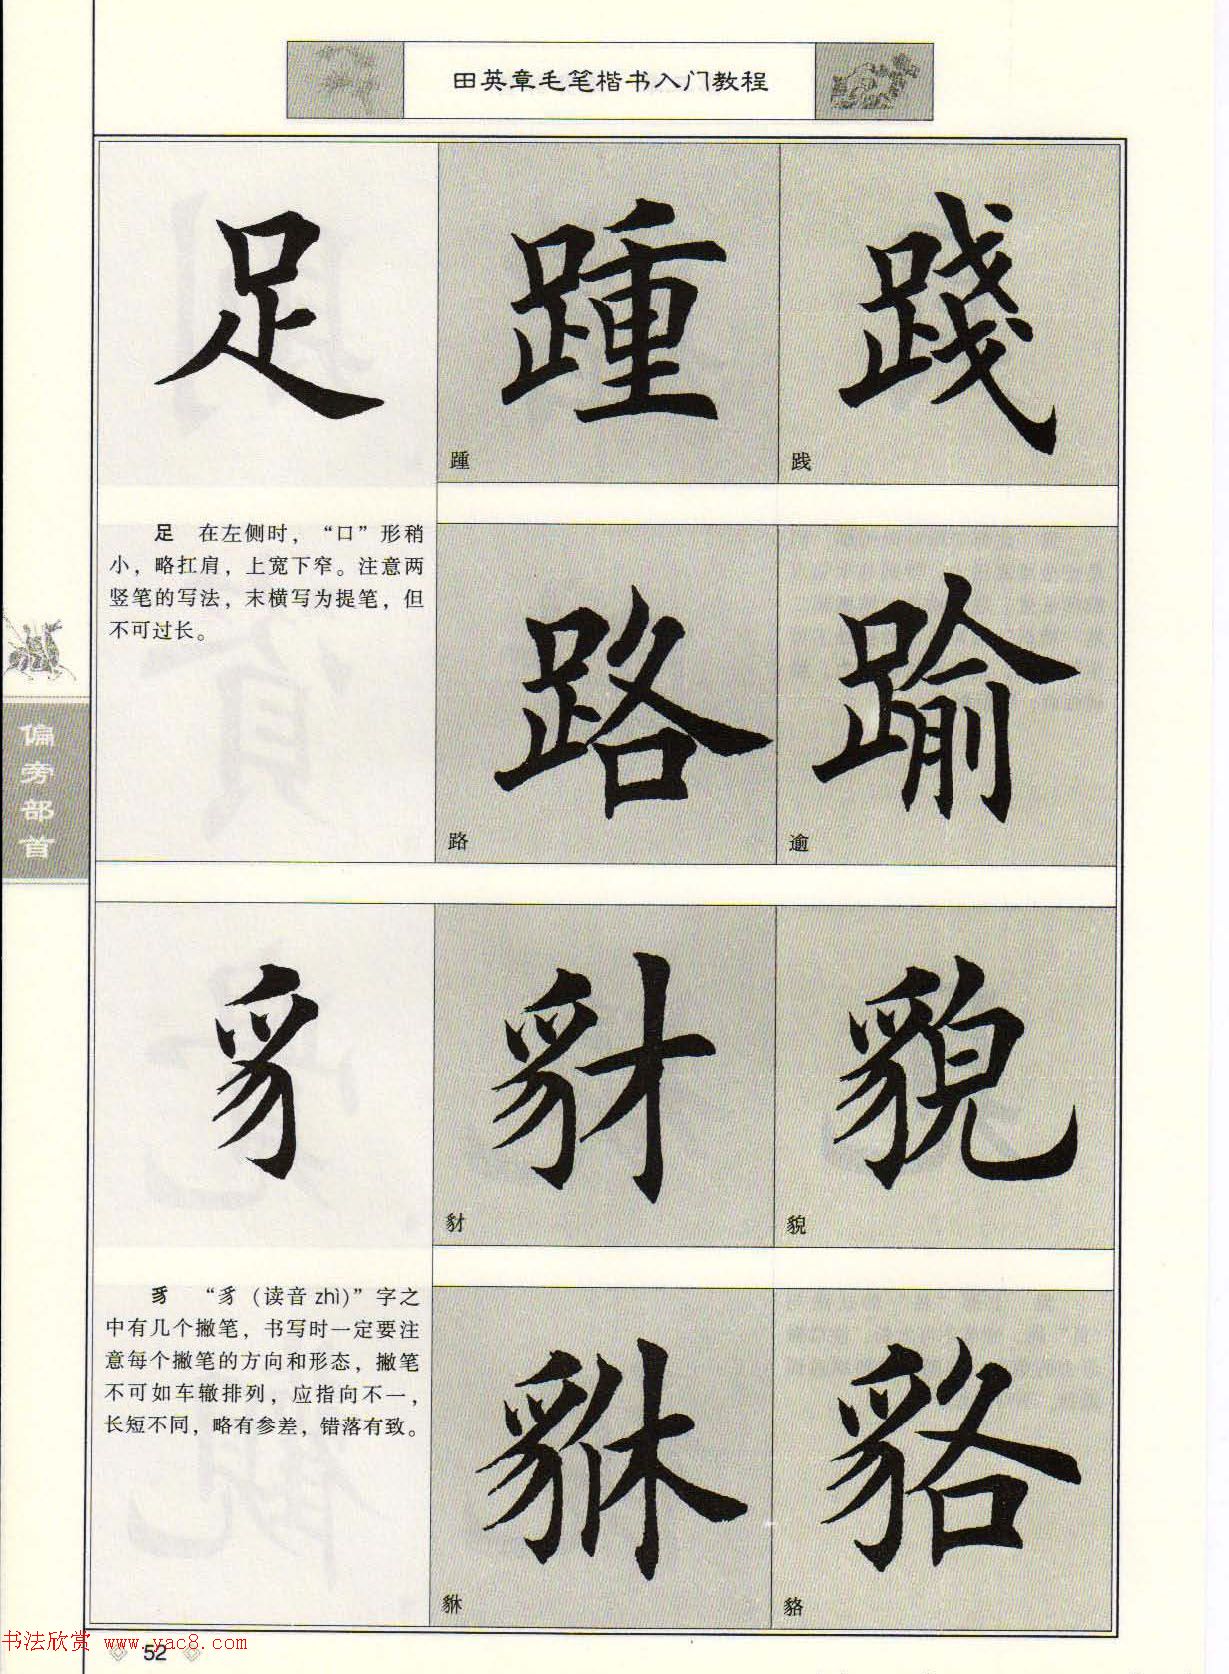 田英章毛笔楷书入门教程
足
踵
踐
踵
践
足 在左侧时，“口”形稍
小，略扛肩，上宽下窄。注意两
竖笔的写法，末横写为提笔，但
不可过长。
路
踰
路
逾
偏旁部首
豸
豺
貌
豺
貌
豸 “豸（读音 zhì）”字之
中有几个撇笔，书写时一定要注
意每个撇笔的方向和形态，撇笔
不可如车辙排列，应指向不一，
长短不同，略有参差，错落有致。
貅
貉
貅
貉
书法欣赏 www.yac8.com
52